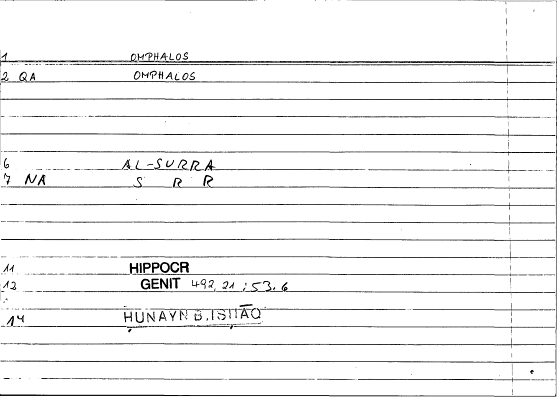 1 OMPHALOS
2 QA OMPHALOS
6 AL-SURRA
7 NA S R R
11 HIPPOCR
12 GENIT 492,21 ; 53.6
14 ḤUNAYN B. ISḤĀQ